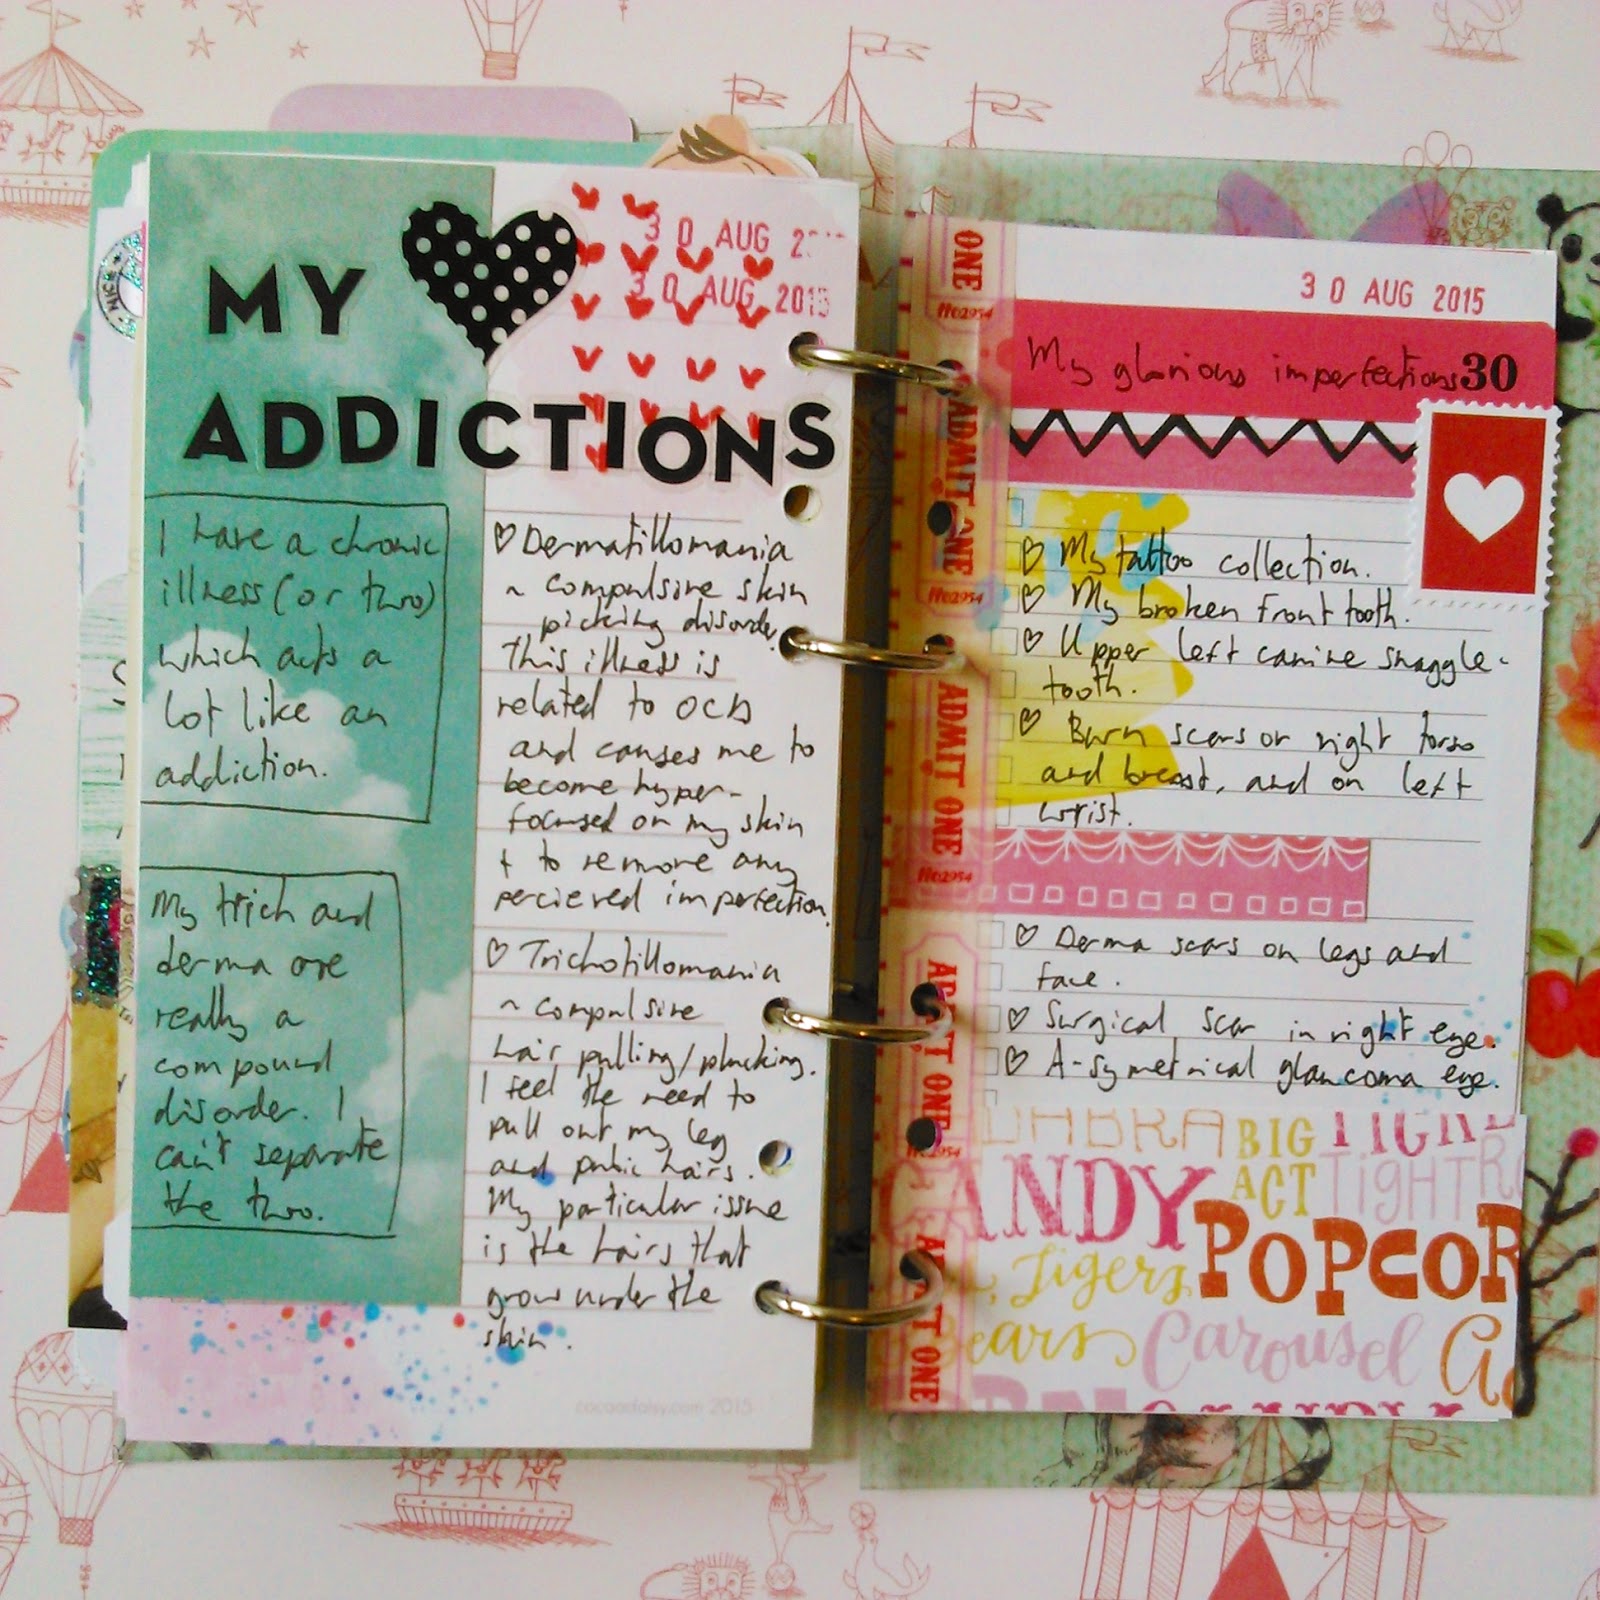 MY
ADDICTIONS
30 AUG
30 AUG 2015
I have a chronic
illness (or two)
which acts a
lot like an
addiction.
My trich and
derma are
really a
compound
disorder. I
can't separate
the two.
♡ Dermatillomania
~ compulsive skin
picking disorder.
This illness is
related to OCD
and causes me to
become hyper-
focused on my skin
+ to remove any
percieved imperfection.
♡ Trichotillomania
~ compulsive
hair pulling/plucking.
I feel the need to
pull out my leg
and pubic hairs.
My particular issue
is the hairs that
grow under the
skin.
cocoadaisy.com 2015
NICE
ONE
No2954
ADMIT ONE
No2954
ADMIT ONE
No2954
ADMIT ONE
No2954
ADMIT ONE
30 AUG 2015
My glorious imperfections 30
♡ My tattoo collection.
♡ My broken front tooth.
♡ Upper left canine snaggle-
tooth.
♡ Burn scars on right torso
and breast, and on left
wrist.
♡ Derma scars on legs and
face.
♡ Surgical scar in right eye.
♡ A-symetrical glaucoma eye.
DABRA BIG TICKE
ANDY ACT TIGHTR
Tigers POPCOR
ears Carousel